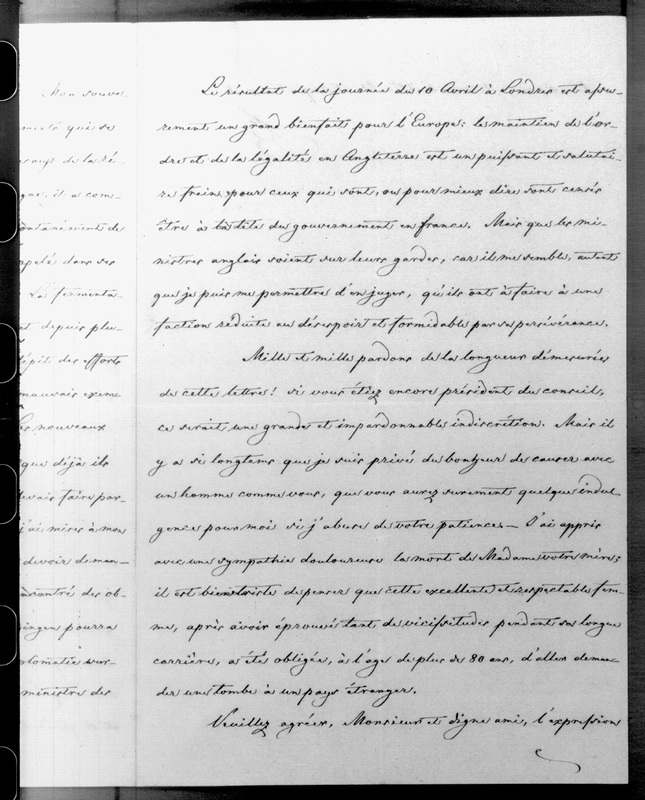 Mon souve-
ments qui se
coup de la ré-
gne, il a com-
ontanément de
ppelé dans ses
La fermenta-
et depuis plu-
dépit des efforts
mauvais exem-
Les nouveaux
que déjà ils
devais faire par-
j'ai mises à mon
devoir deman-
ncontré des ob-
ingen pourra
plomatie sur-
ministre des
Le résultat de la journée du 10 Avril à Londres est assu-
rement un grand bienfait pour l'Europe: le maintien de l'or-
dre et de la légalité en Angleterre est un puissant et salutai-
re frein pour ceux qui sont, ou pour mieux dire sont censés
être à la tête du gouvernement en france. Mais que les mi-
nistres anglais soient sur leurs gardes, car il me semble, autant
que je puis me permettre d'en juger, qu'ils ont à faire à une
faction réduite au désespoir et formidable par sa persévérance.
Mille et mille pardons de la longueur démesurée
de cette lettre! si vous étiez encore président du conseil,
ce serait une grande et impardonnable indiscrétion. Mais il
y a si longtems que je suis privé du bonheur de causer avec
un homme comme vous, que vous aurez surement quelque indul-
gence pour moi si j'abuse de votre patience. — J'ai appris
avec une sympathie douloureuse la mort de Madame votre mère;
il est bien triste de penser que cette excellente et respectable fem-
me, après avoir éprouvé tant de vicissitudes pendant sa longue
carrière, a été obligée, à l'age de plus de 80 ans, d'aller deman-
der une tombe à un pays étranger.
Veuillez agréer, Monsieur et digne ami, l'expression